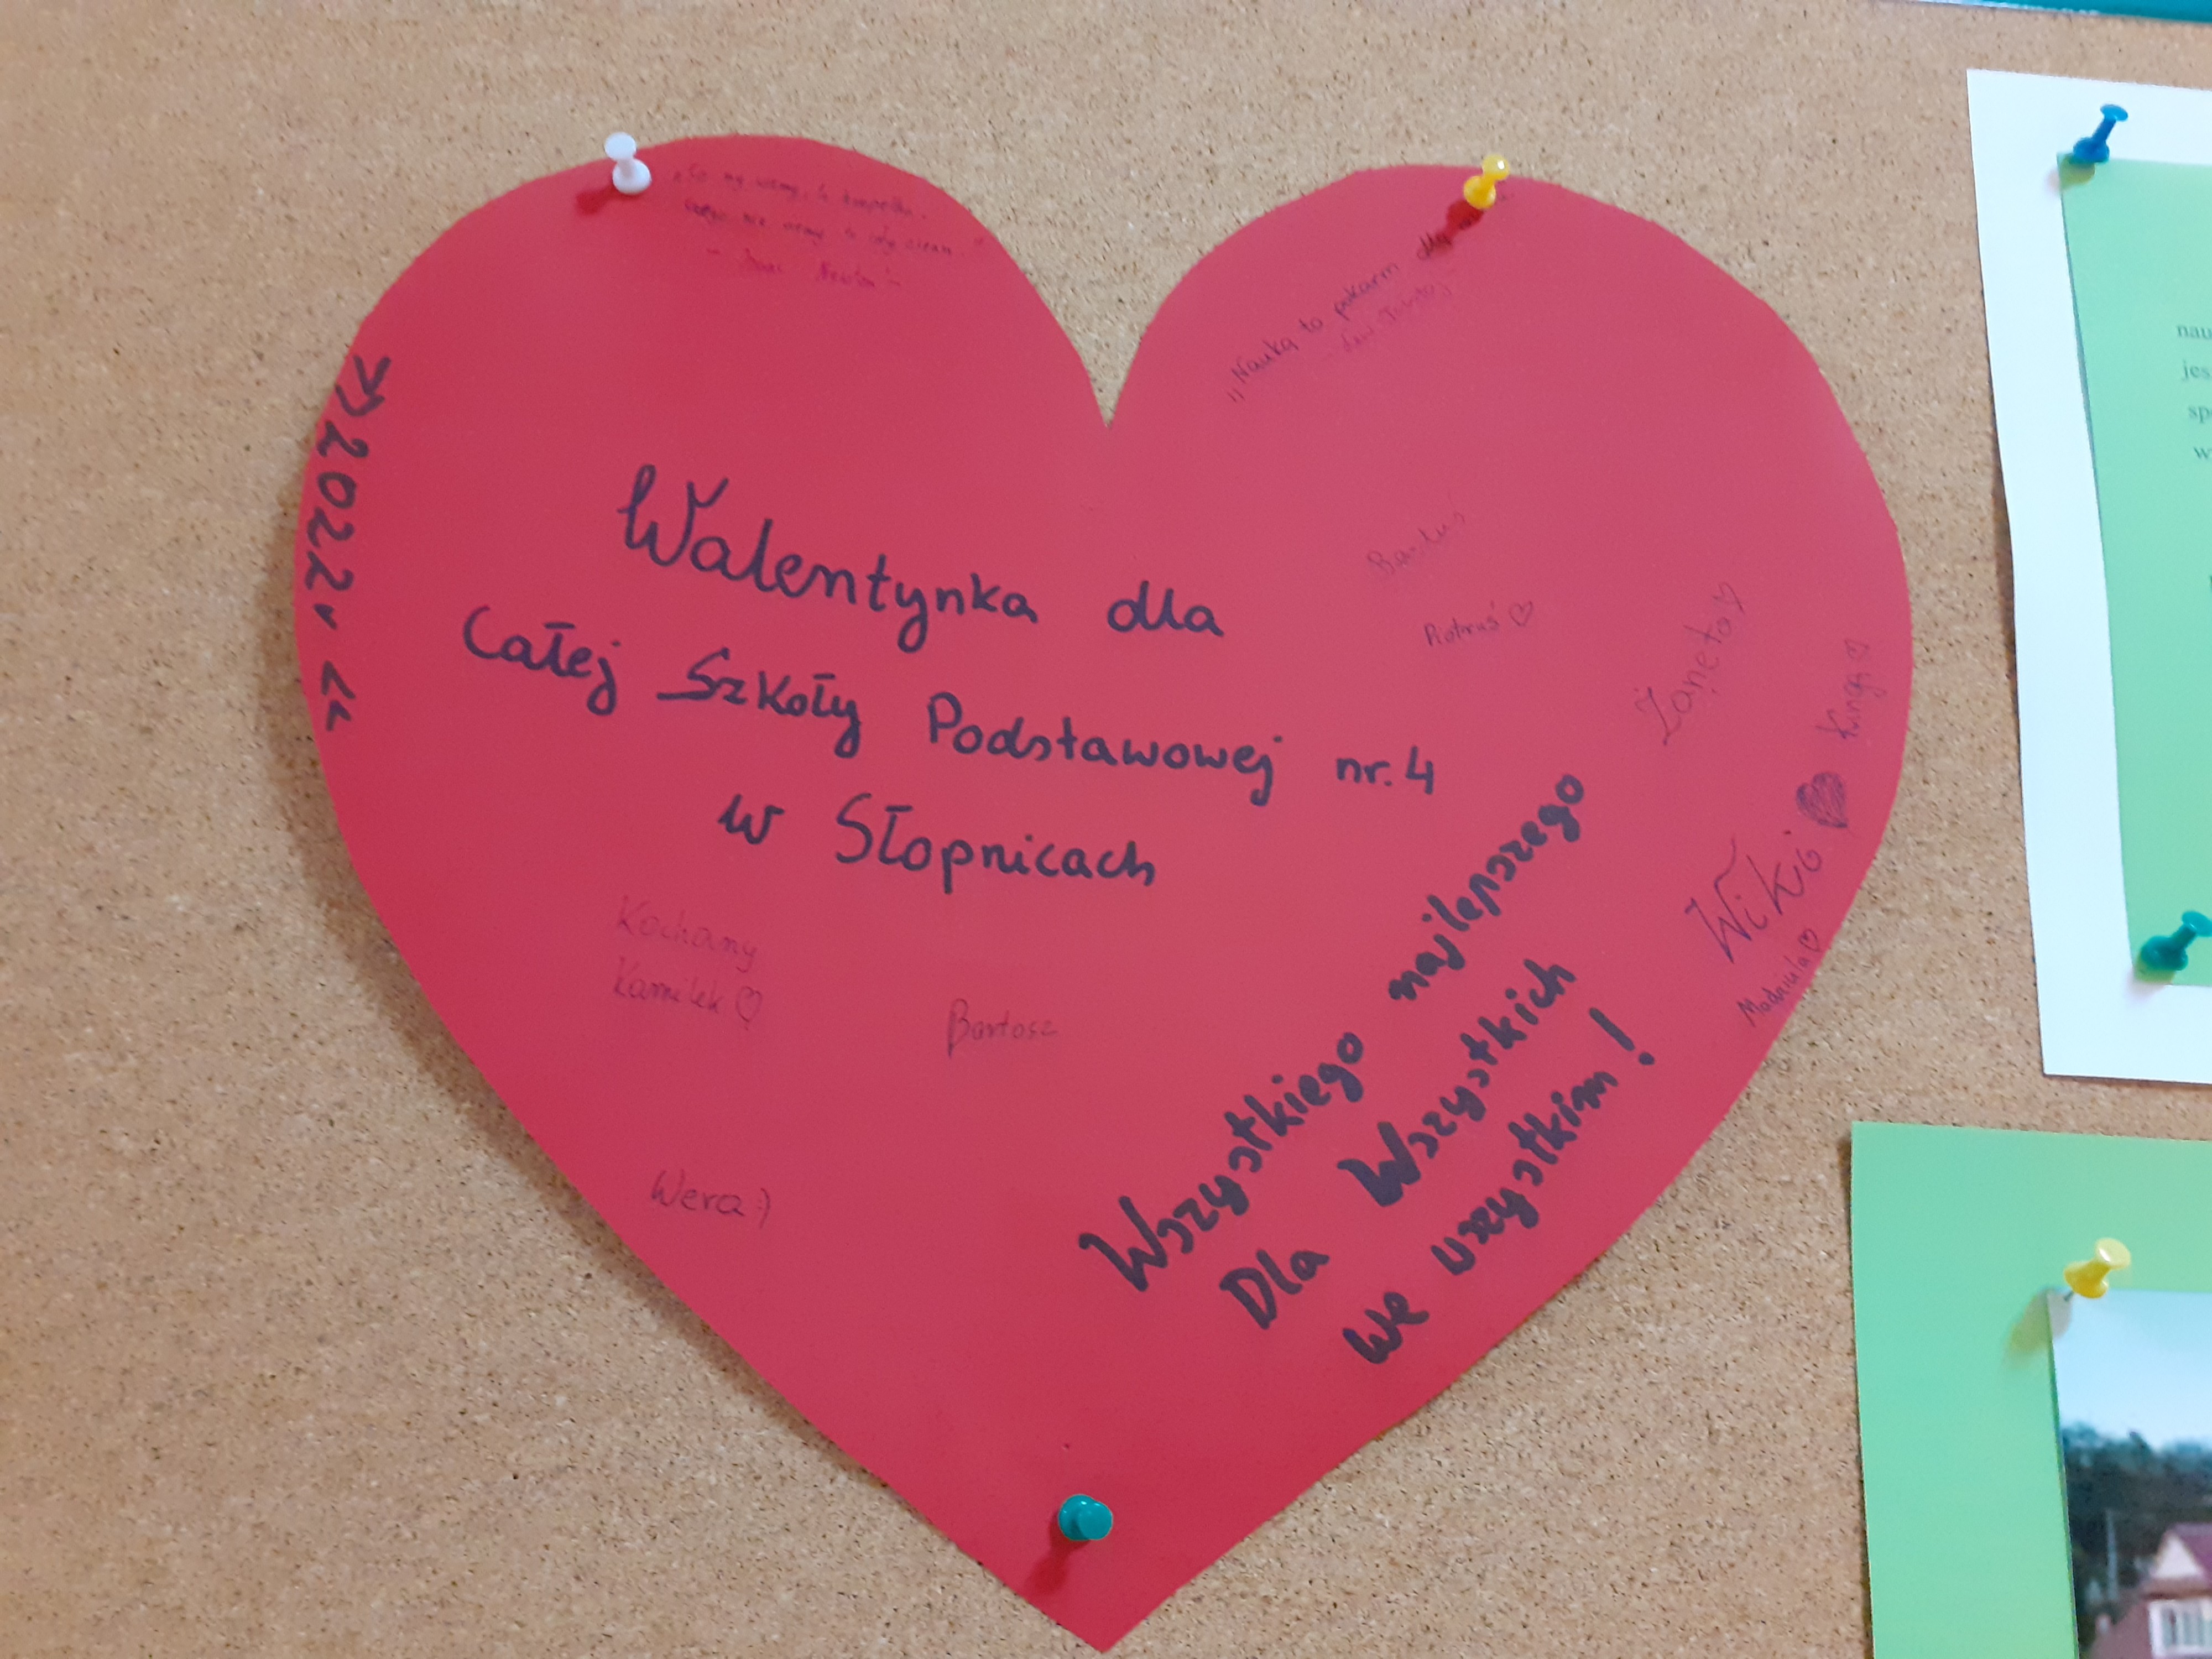 „Co my wiemy, to kropelka.
Czego nie wiemy to cały ocean."
- Isaac Newton -
„Nauka to pokarm dla
- Lew Tołstoj
>>2022r <<
Walentynka dla
Całej Szkoły Podstawowej nr. 4
w Słopnicach
Bartuś
Piotruś ♡
Żaneta ♡
Kinga ♡
Wiki ♥
Kochany
Kamilek ♡
Bartosz
Wera :)
Wszystkiego najlepszego
Dla Wszystkich
we wszystkim!
nau
jes